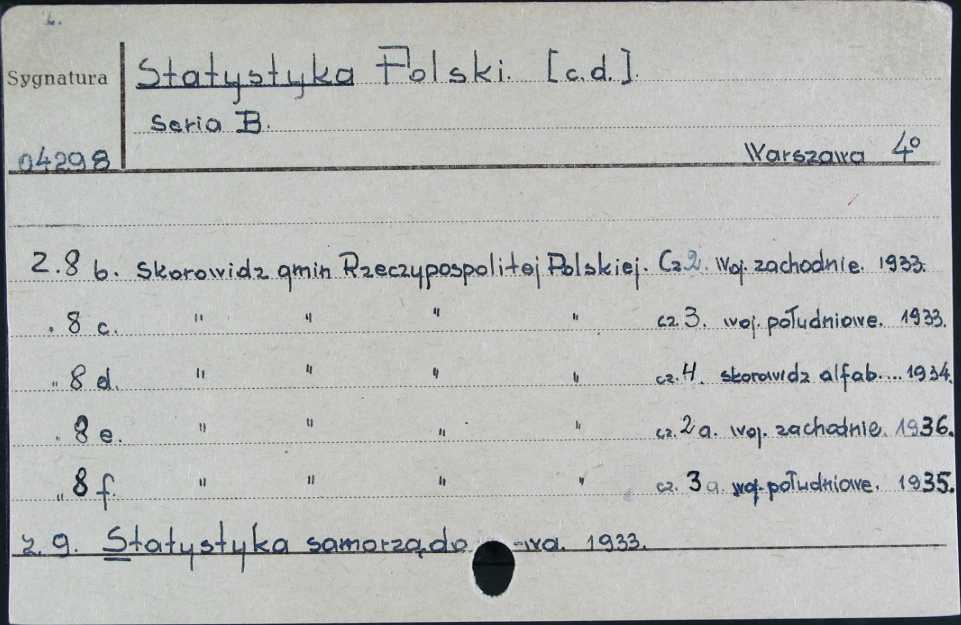 Sygnatura
Statystyka Polski. [c.d.].
Seria B.
04298
Warszawa 4º
Z. 8 b. Skorowidz gmin Rzeczypospolitej Polskiej. Cz 2. Woj. zachodnie. 1933.
" 8 c. " " " " cz. 3. woj. południowe. 1933.
" 8 d. " " " " cz. 4. skorowidz alfab.... 1934.
" 8 e. " " " " cz. 2 a. woj. zachodnie. 1936.
" 8 f. " " " " cz. 3 a woj. południowe. 1935.
z. 9. Statystyka samorządo -wa. 1933.